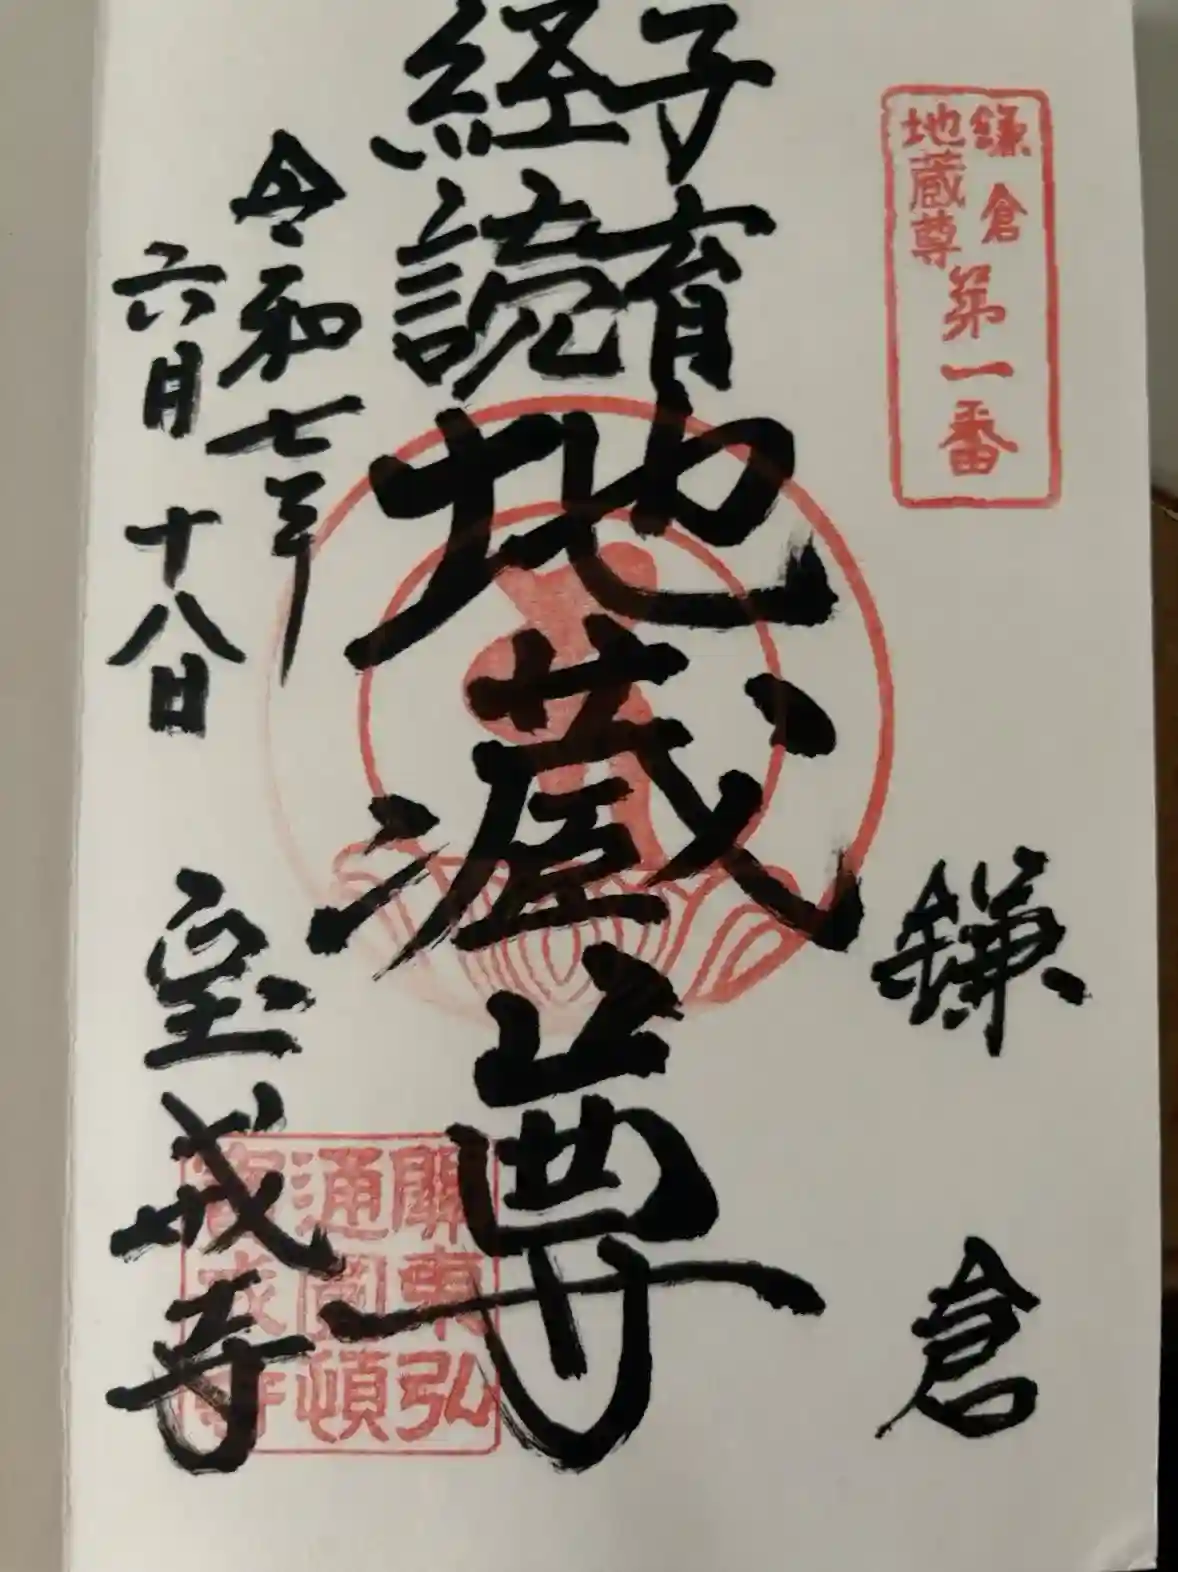 鎌倉
地蔵尊
第一番
鎌倉
子育
経読
地蔵尊
令和七年
六月十八日
宝戒寺
關東弘
通圓頓
宝戒寺